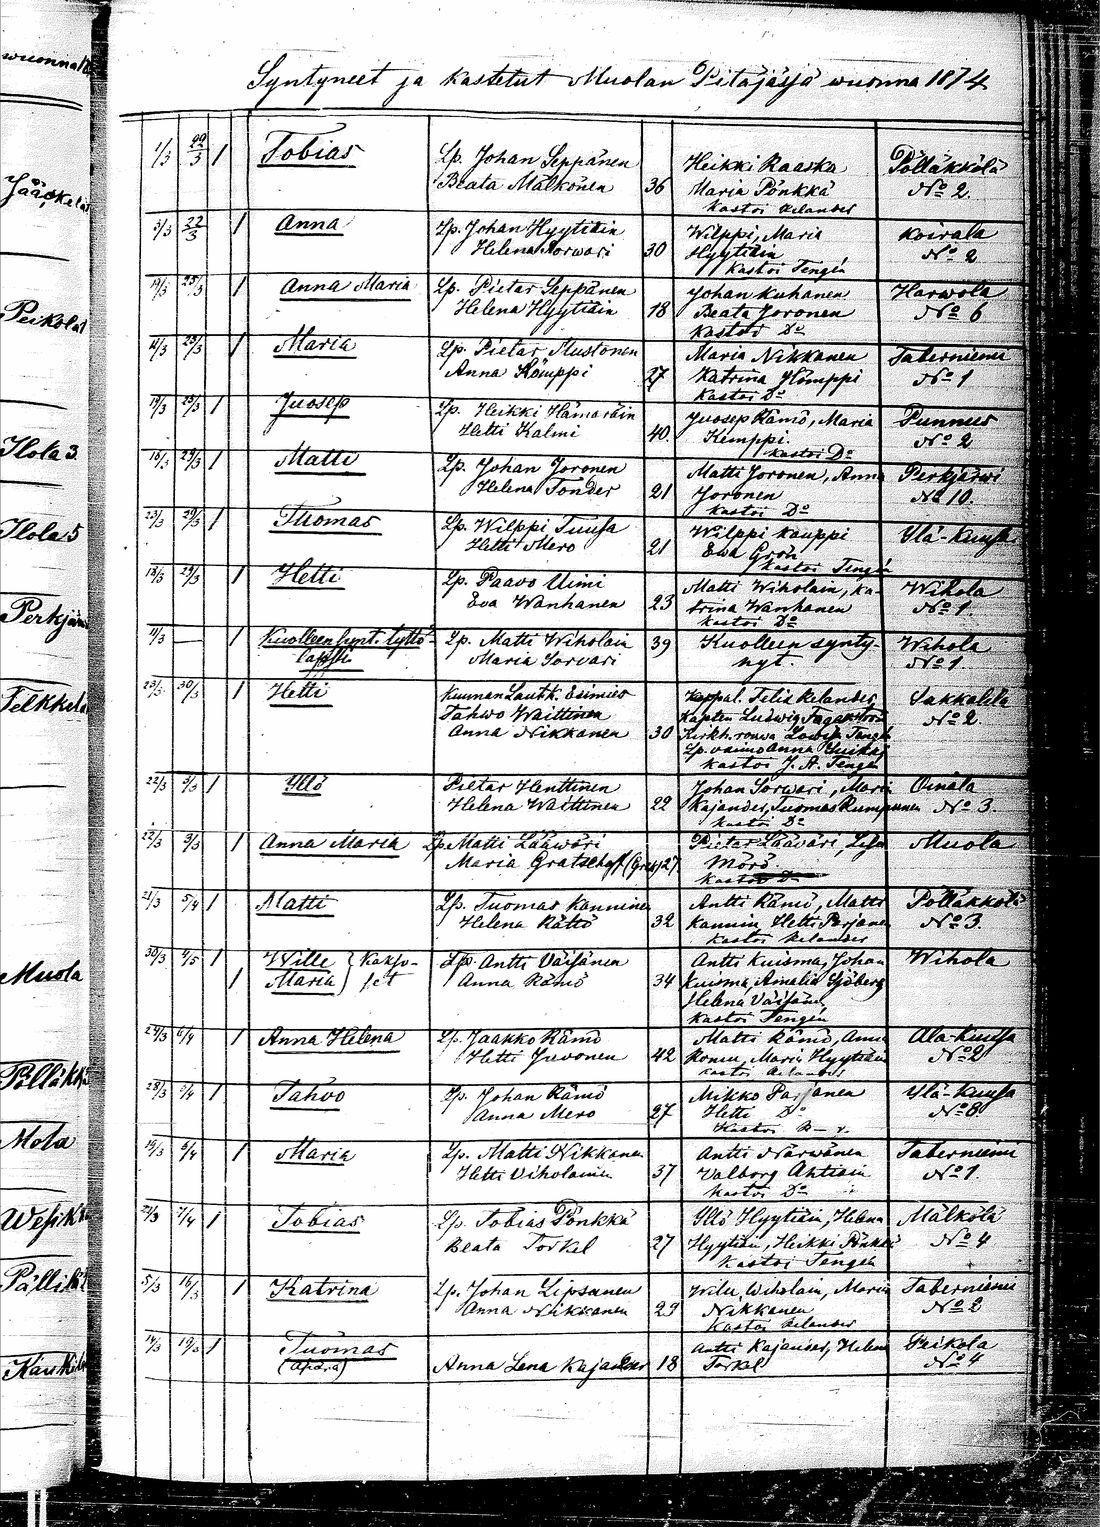 Syntyneet ja kastetut Muolan Pitäjässä wuonna 1874
1/3 22/3 1 Tobias Lp. Johan Seppänen Heikki Raaska Pölläkkälä
Beata Mälkönen 36 Maria Pönkkä No 2.
kastoi Relander
3/3 22/3 1 Anna Lp. Johan Hyytiäin Wilppi, Maria Koirala
Helena Sorwari 30 Hyytiäin No 2
kastoi Tengén
19/3 25/3 1 Anna Maria Lp. Pietar Seppänen Johan Kuhanen Harwola
Helena Hyytiäin 18 Beata Joronen No 6
kastoi Do
11/3 25/3 1 Maria Lp. Pietar Mustonen Maria Nikkanen Taberniemi
Anna Kämppi 27 Katrina Kämppi No 1
kastoi Do
19/3 25/3 1 Juosep Lp. Heikki Hämäräin Juosep Rämö, Maria Punnus
Hetti Kalmi 40. Kemppi. No 2
kastoi Do
18/3 29/3 1 Matti Lp. Johan Joronen Matti Joronen, Anna Perkjärwi
Helena Tonder 21 Joronen No 10.
kastoi Do
23/3 29/3 1 Tuomas Lp. Wilppi Tuusa Wilppi Kauppi Ylä-Kuusa
Hetti Mero 21 Ewa Grön
kastoi Tengén
18/3 29/3 1 Hetti Lp. Paavo Uimi Matti Wiholain, Ka- Wihola
Eva Wanhanen 23 trina Wanhanen No 1.
kastoi Do
11/3 — 1 Kuolleen synt. tyttö- Lp. Matti Wiholain 39 Kuolleen synty- Wihola
lapsi Maria Sorvari nyt. No 1.
23/3 30/3 1 Hetti Kunnan Lautk. Esimies Kappal. Felix Relander Sakkalila
Tahwo Waittinen Kapten Ludwig Fagerström No 2.
Anna Nikkanen 30 Kirkh. rouwa Lowisa Tengén
Lp. vaimo Anna
kastoi J. A. Tengén
22/3 3/3 1 Yllö Pietar Henttinen Johan Sorwari, Maria Oinala
Helena Waittinen 22 Kajander, Tuomas Rumpunen No 3.
kastoi Do
22/3 3/3 1 Anna Maria Lp. Matti Lääwäri Pietar Lääväri, Lisa Muola
Maria Gratscheff 27 Mörö
kastoi Do
21/3 5/4 1 Matti Lp. Tuomas Kanninen Antti Rämö, Matti Pölläkkälä
Helena Rättö 32 Kannin, Hetti Parjanen No 3.
kastoi Relander
30/3 4/5 1 Wille Kakso- Lp. Antti Väisänen Antti Kuisma, Johan Wihola
1 Maria set Anna Rämö 34 Kuisma, Amalia Sjöberg
Helena Väisäin
kastoi Tengén
29/3 6/4 1 Anna Helena Lp. Jaakko Rämö Matti Rämö, Anna Ala-Kuusa
Hetti Juvonen 42 Maria Hyytiäin No 2
kastoi Relander
28/3 1 Tahvo Lp. Johan Rämö Mikko Parjanen Ylä-Kuusa
Anna Mero 27 Hetti Do No 8
Kastoi R—r.
19/3 5/4 1 Maria Lp. Matti Nikkanen Antti Närwänen Taberniemi
Hetti Viholainen 37 Valborg Ahtiain No 1.
kastoi Do
24/3 7/4 1 Tobias Lp. Tobias Pönkkä Yllö Hyytiäin, Helena Mälkölä
Beata Torkel 27 Hyytiäin, Heikki Pönkkä No 4
kastoi Tengén
5/3 16/3 1 Katrina Lp. Johan Lipsanen Wille Wiholain, Maria Taberniemi
Anna Nikkanen 29 Nikkanen No 2
kastoi Relander
14/3 19/3 1 Tuomas Antti Kajander, Helena Peikola
(äpärä) Anna Lena Kajander 18 Torkel No 4
wuonna
Jääskelä
Peikola
Ilola 3.
Ilola 5
Perkjär
Telkkela
Muola
Pölläkk
Mola
Wesik
Pällilä